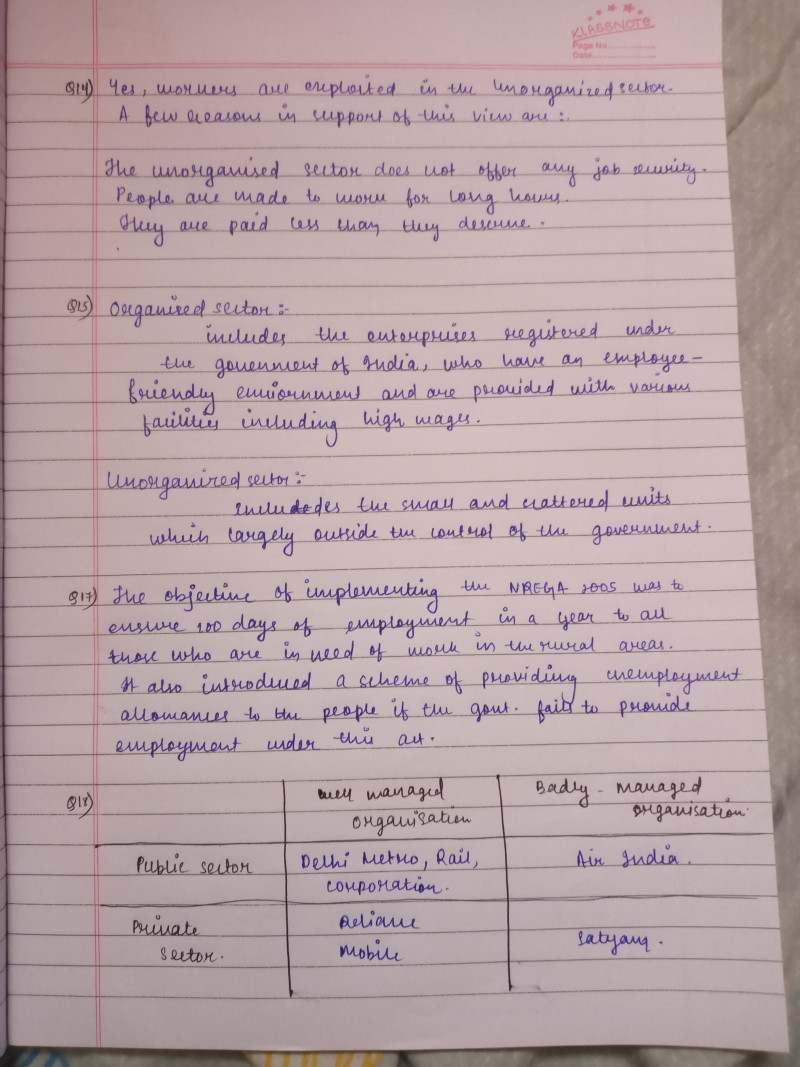 KLASSNOTE
Page No.
Date
Q14) Yes, workers are exploited in the Unorganized sector.
A few reasons in support of this view are :.
The unorganised sector does not offer any job security.
People are made to work for long hours.
They are paid less than they deserve.
Q15) Organized sector :-
includes the enterprises registered under
the government of India, who have an employee-
friendly enviornment and are provided with various
facilities including high wages.
Unorganized sector :-
Includes the small and scattered units
which largely outside the control of the government.
Q17) The objective of implementing the NREGA 2005 was to
ensure 100 days of employment in a year to all
those who are in need of work in the rural areas.
It also introduced a scheme of providing unemployment
allowances to the people if the govt. fails to provide
employment under this act.
Q18) well managed organisation Badly - managed organisation.
Public sector Delhi Metro, Rail, corporation. Air India.
Private sector. Reliance Mobile Satyam.